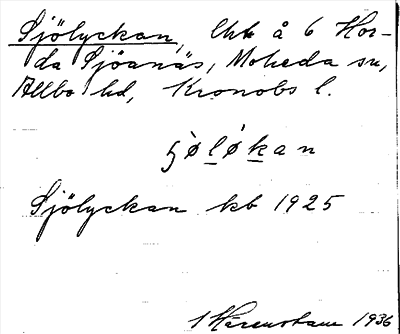 Sjölyckan, lht å 6 Hor-
da Sjöanäs, Moheda sn,
Allbo hd, Kronobs l.
ʃø̀lø̀kan
Sjölyckan kb 1925
1936